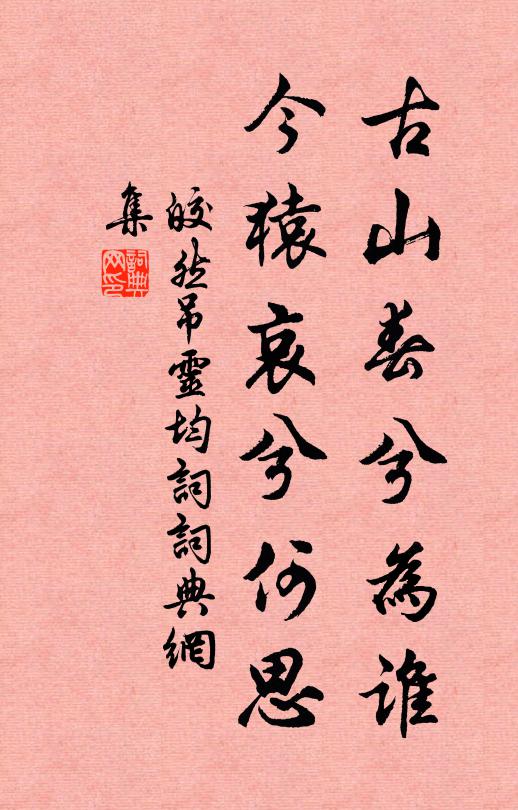 古山春兮為誰
今猿哀兮何思
皎然吊靈均詞詞典網
集
詞典网印